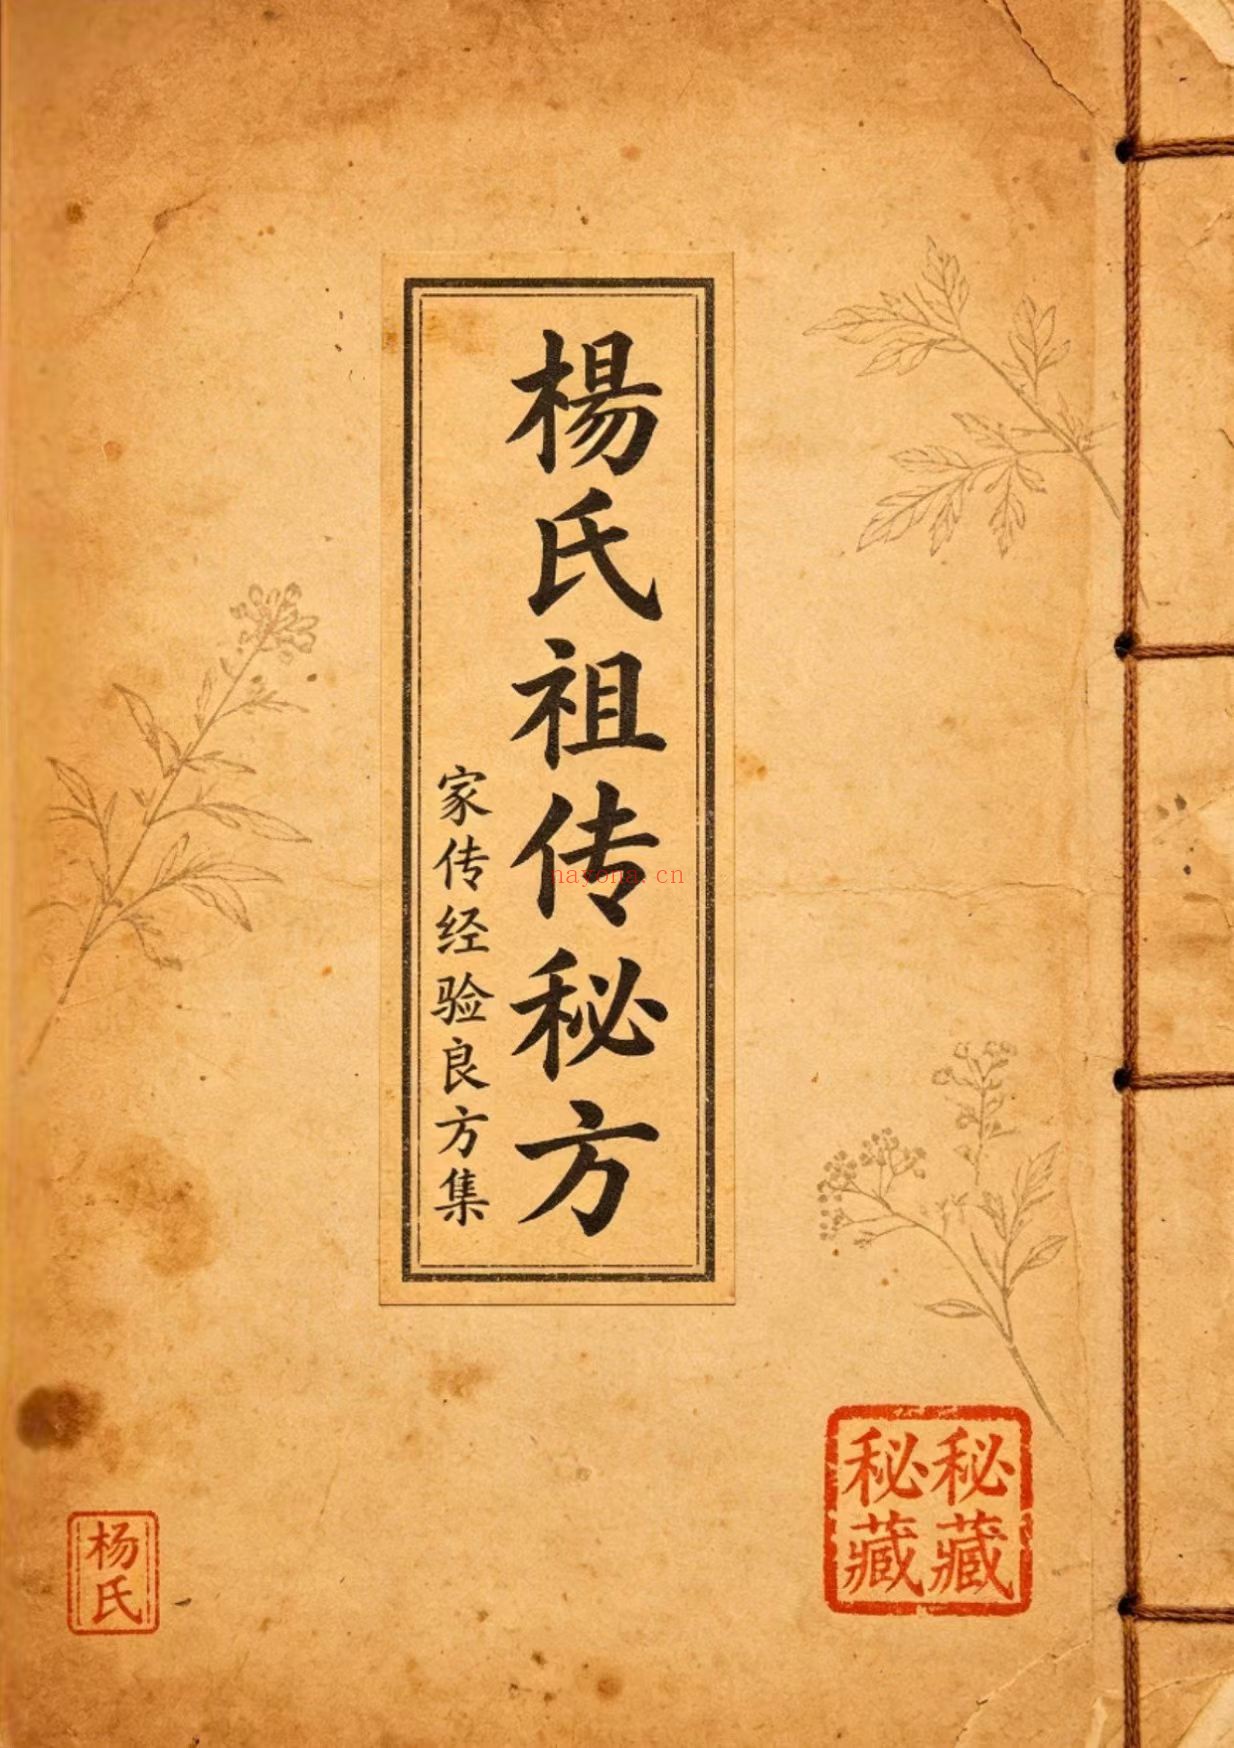 楊氏祖传秘方
家传经验良方集
nayona.cn
秘藏
秘藏
杨氏